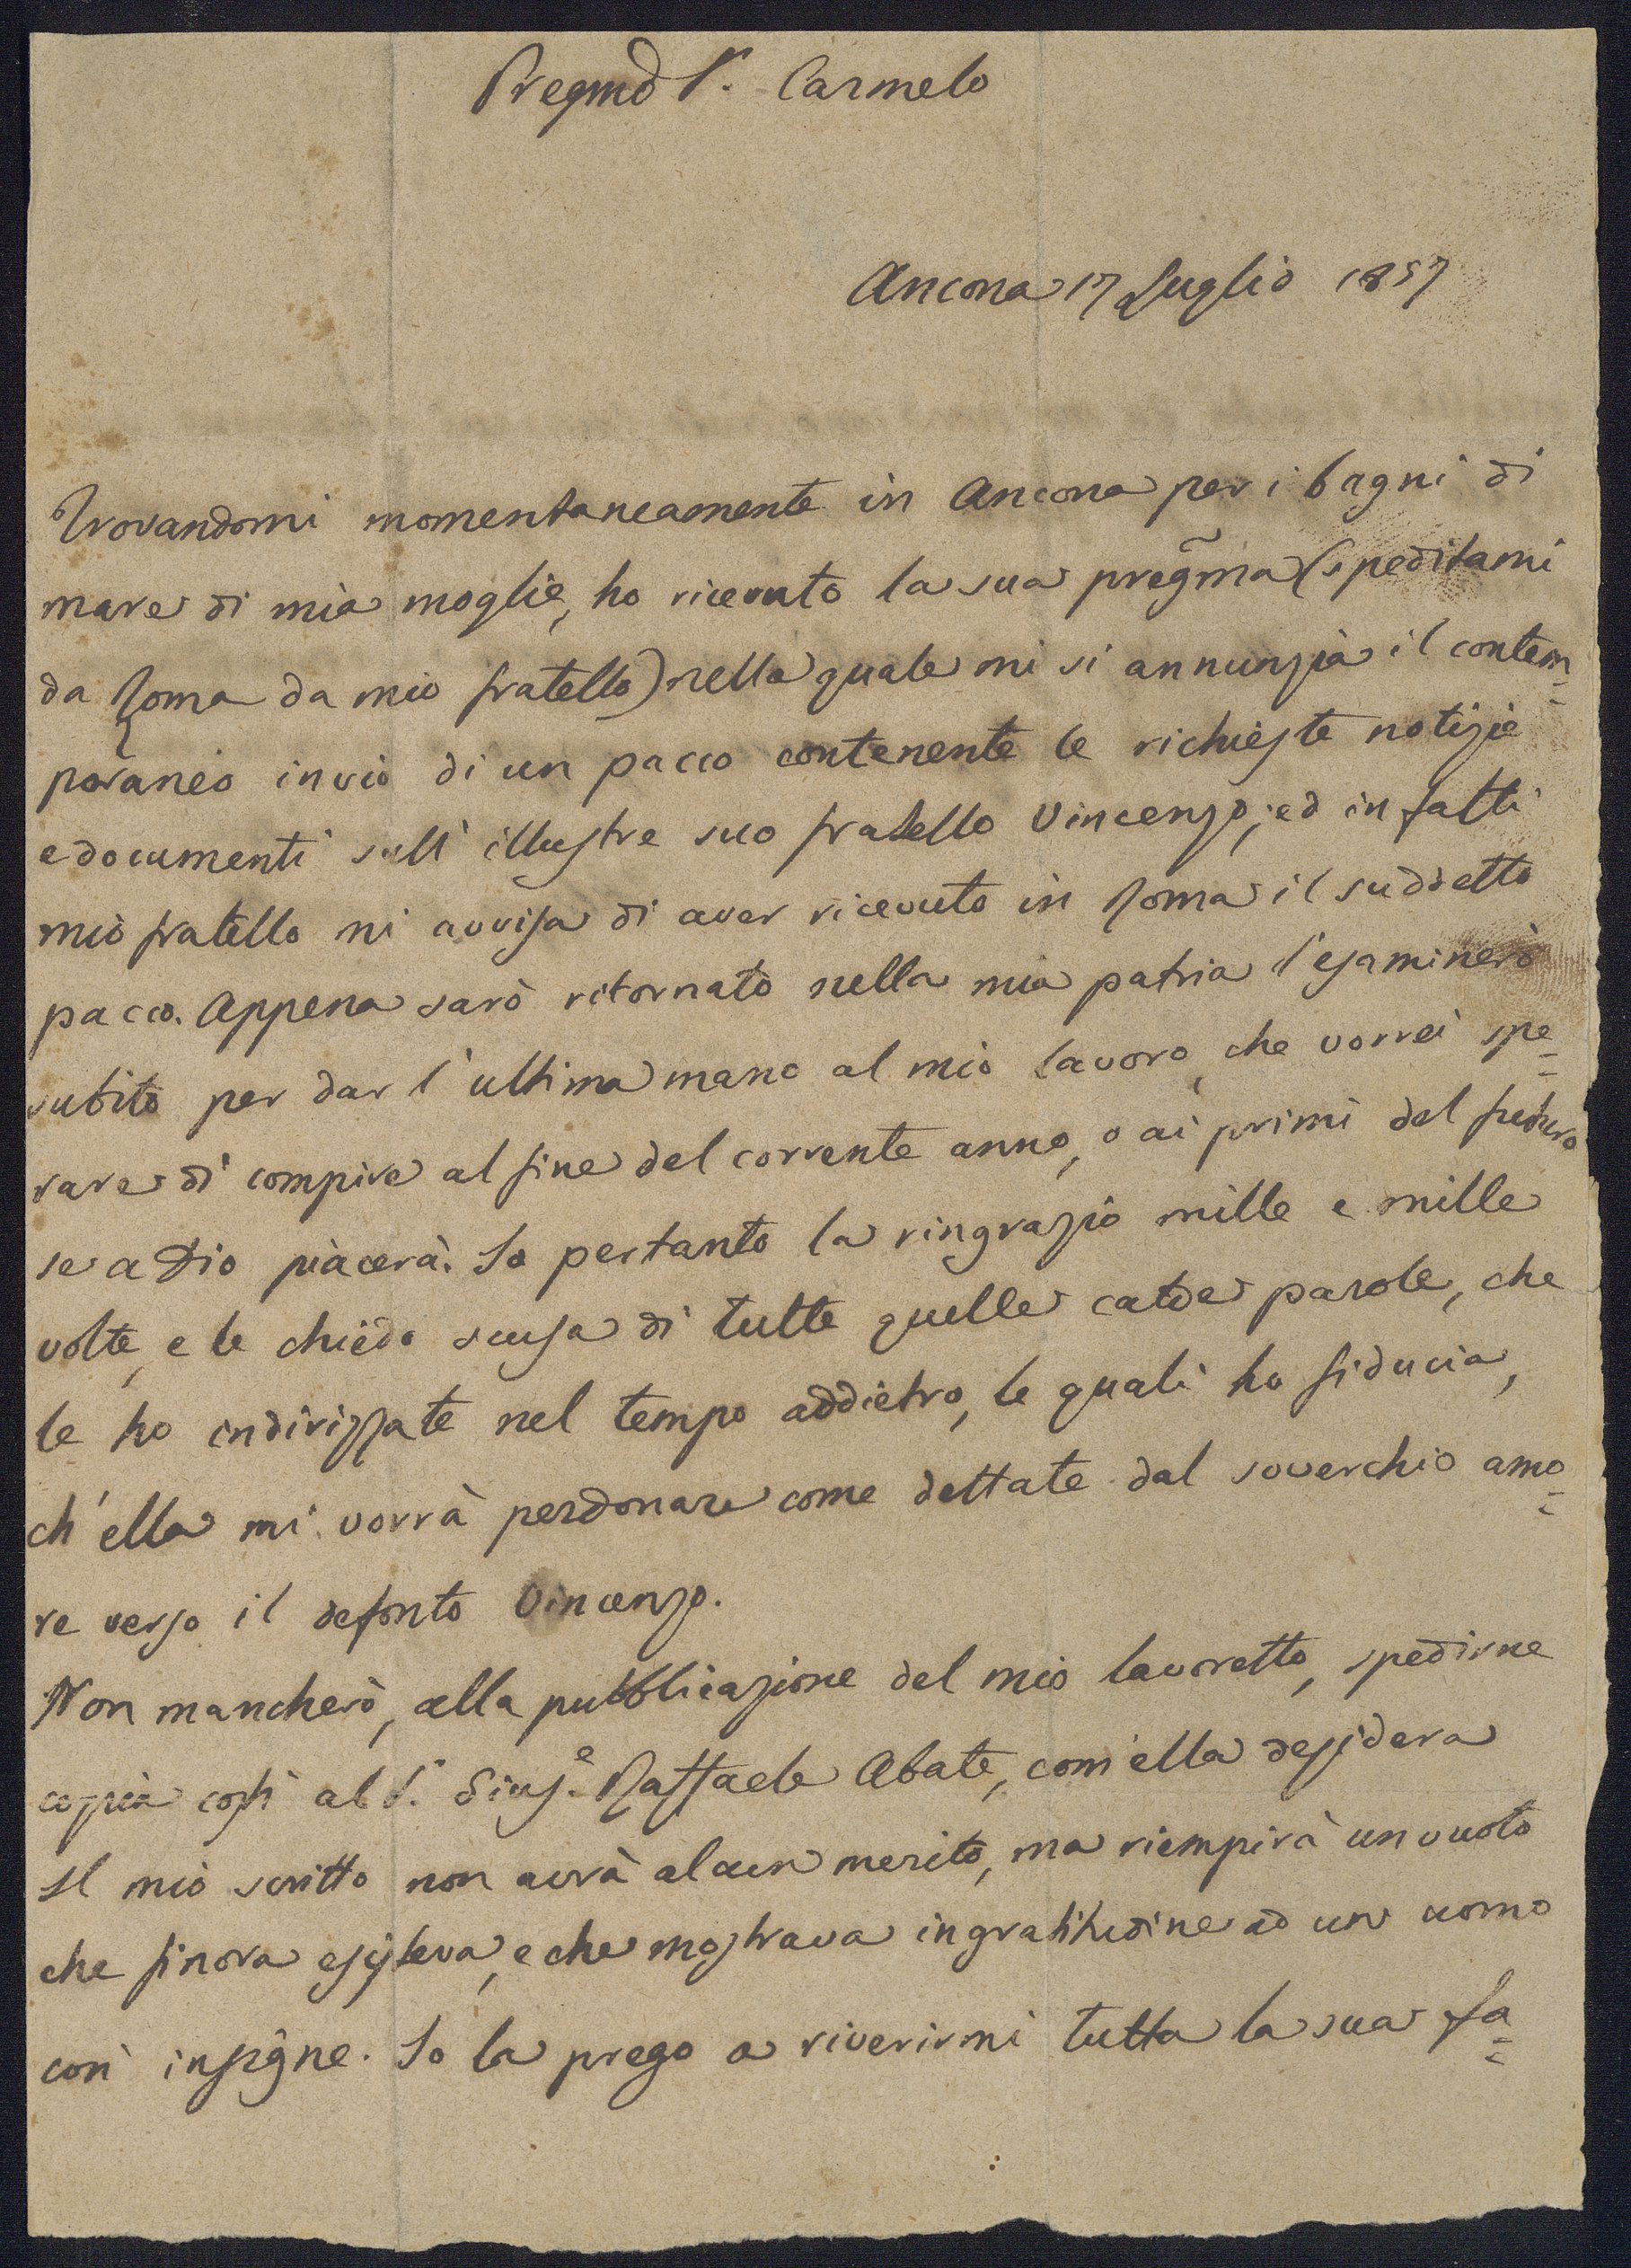 Pregmo S.r Carmelo
Ancona 17 Luglio 1857
Trovandomi momentaneamente in Ancona per i bagni di
mare di mia moglie, ho ricevuto la sua pregma (speditami
da Roma da mio fratello) nella quale mi si annunzia il contem=
poraneo invio di un pacco contenente le richieste notizie
e documenti sull' illustre suo fratello Vincenzo; ed in fatti
mio fratello mi avvisa di aver ricevuto in Roma il suddetto
pacco. Appena sarò ritornato nella mia patria l'esaminerò
subito per dar l'ultima mano al mio lavoro, che vorrei spe=
rare di compire al fine del corrente anno, o ai primi del futuro
se a Dio piacerà. Io pertanto la ringrazio mille e mille
volte, e le chiedo scusa di tutte quelle calde parole, che
le ho indirizzate nel tempo addietro, le quali ho fiducia,
ch'ella mi vorrà perdonare come dettate dal soverchio amo=
re verso il defonto Vincenzo.
Non mancherò, alla pubblicazione del mio lavoretto, spedirne
copia costì al S. Gius.e Raffaele Abate, com'ella desidera
Il mio scritto non avrà alcun merito, ma riempirà un vuoto
che finora esisteva, e che mostrava ingratitudine ad un uomo
così insigne. Io la prego a riverirmi tutta la sua fa=